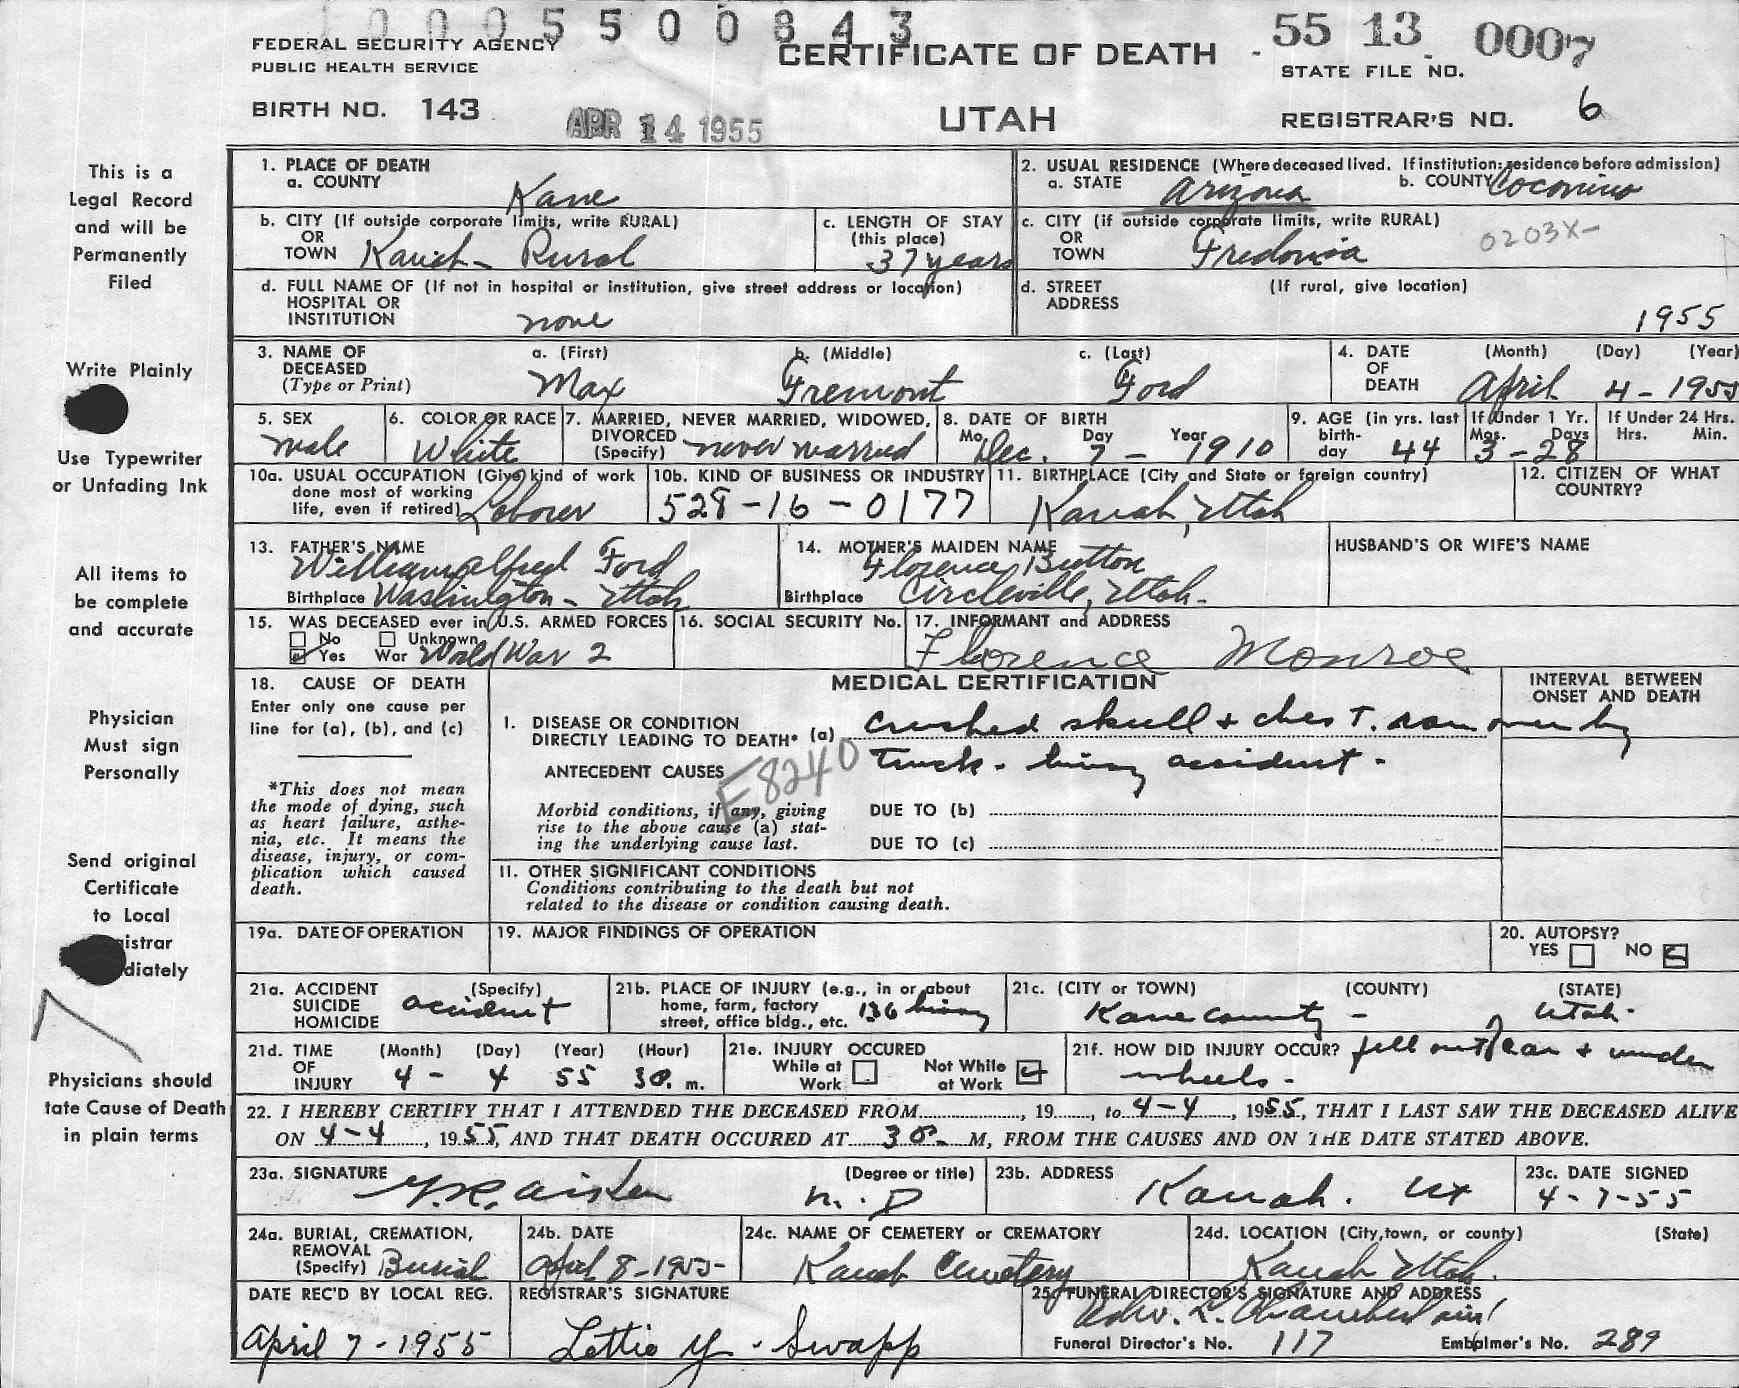 1000550084 3
FEDERAL SECURITY AGENCY
PUBLIC HEALTH SERVICE
CERTIFICATE OF DEATH
55 13 0007
STATE FILE NO.
BIRTH NO. 143
APR 14 1955
UTAH
REGISTRAR'S NO. 6
This is a
Legal Record
and will be
Permanently
Filed
Write Plainly
Use Typewriter
or Unfading Ink
All items to
be complete
and accurate
Physician
Must sign
Personally
Send original
Certificate
to Local
istrar
diately
7
Physicians should
tate Cause of Death
in plain terms
1. PLACE OF DEATH
a. COUNTY Kane
2. USUAL RESIDENCE (Where deceased lived. If institution: residence before admission)
a. STATE Arizona b. COUNTY Coconino
b. CITY (If outside corporate limits, write RURAL)
OR
TOWN Kanab - Rural
c. LENGTH OF STAY
(this place)
37 years
c. CITY (if outside corporate limits, write RURAL)
OR
TOWN Fredonia
0203X-
d. FULL NAME OF (If not in hospital or institution, give street address or location)
HOSPITAL OR
INSTITUTION none
d. STREET (If rural, give location)
ADDRESS
1955
3. NAME OF
DECEASED
(Type or Print)
a. (First) b. (Middle) c. (Last)
Max Fremont Ford
4. DATE (Month) (Day) (Year)
OF
DEATH April 4 - 1955
5. SEX
male
6. COLOR OR RACE
White
7. MARRIED, NEVER MARRIED, WIDOWED,
DIVORCED
(Specify) never married
8. DATE OF BIRTH
Mo. Day Year
Dec. 7 - 1910
9. AGE (in yrs. last
birth-
day 44
If Under 1 Yr.
Mos. Days
3 - 28
If Under 24 Hrs.
Hrs. Min.
10a. USUAL OCCUPATION (Give kind of work
done most of working
life, even if retired) Laborer
10b. KIND OF BUSINESS OR INDUSTRY
528-16-0177
11. BIRTHPLACE (City and State or foreign country)
Kanab, Utah
12. CITIZEN OF WHAT
COUNTRY?
13. FATHER'S NAME
William Alfred Ford
Birthplace Washington - Utah
14. MOTHER'S MAIDEN NAME
Florence Button
Birthplace Circleville, Utah -
HUSBAND'S OR WIFE'S NAME
15. WAS DECEASED ever in U.S. ARMED FORCES
No Unknown
Yes War World War 2
16. SOCIAL SECURITY No.
17. INFORMANT and ADDRESS
Florence Monroe
18. CAUSE OF DEATH
Enter only one cause per
line for (a), (b), and (c)
*This does not mean
the mode of dying, such
as heart failure, asthe-
nia, etc. It means the
disease, injury, or com-
plication which caused
death.
MEDICAL CERTIFICATION
INTERVAL BETWEEN
ONSET AND DEATH
I. DISEASE OR CONDITION
DIRECTLY LEADING TO DEATH* (a) crushed skull + chest. ran over by
ANTECEDENT CAUSES truck - hiway accident -
E8240
Morbid conditions, if any, giving
rise to the above cause (a) stat-
ing the underlying cause last.
DUE TO (b)
DUE TO (c)
II. OTHER SIGNIFICANT CONDITIONS
Conditions contributing to the death but not
related to the disease or condition causing death.
19a. DATE OF OPERATION
19. MAJOR FINDINGS OF OPERATION
20. AUTOPSY?
YES NO
21a. ACCIDENT (Specify)
SUICIDE
HOMICIDE
accident
21b. PLACE OF INJURY (e.g., in or about
home, farm, factory
street, office bldg., etc. 136 hiway
21c. (CITY or TOWN) (COUNTY) (STATE)
Kane county - Utah.
21d. TIME (Month) (Day) (Year) (Hour)
OF
INJURY 4 - 4 55 m.
21e. INJURY OCCURED
While at
Work
Not While
at Work
21f. HOW DID INJURY OCCUR? fell out car + under
wheels -
22. I HEREBY CERTIFY THAT I ATTENDED THE DECEASED FROM , 19 , to 4-4 , 1955, THAT I LAST SAW THE DECEASED ALIVE
ON 4-4 , 1955, AND THAT DEATH OCCURED AT M, FROM THE CAUSES AND ON THE DATE STATED ABOVE.
23a. SIGNATURE (Degree or title)
Aiken M.D
23b. ADDRESS
Kanab. Ut
23c. DATE SIGNED
4-7-55
24a. BURIAL, CREMATION,
REMOVAL
(Specify) Burial
24b. DATE
April 8-1955
24c. NAME OF CEMETERY or CREMATORY
Kanab Cemetery
24d. LOCATION (City, town, or county) (State)
Kanab Utah.
DATE REC'D BY LOCAL REG.
April 7-1955
REGISTRAR'S SIGNATURE
Lottie Y. Swapp
25. FUNERAL DIRECTOR'S SIGNATURE AND ADDRESS
Adw. L. Chamberlain
Funeral Director's No. 117 Embalmer's No. 289